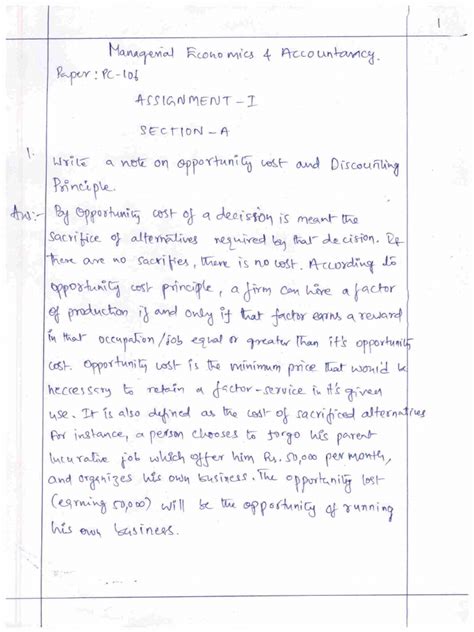 1
Managerial Economics & Accountancy.
Paper: PC-106
ASSIGNMENT-I
SECTION-A
1.
Write a note on opportunity cost and Discounting
Principle.
Ans:- By opportunity cost of a decision is meant the
sacrifice of alternatives required by that decision. If
there are no sacrifies, there is no cost. According to
opportunity cost principle, a firm can hire a factor
of production if and only if that factor earns a reward
in that occupation/job equal or greater than it's opportunity
cost. Opportunity cost is the minimum price that would be
neccessary to retain a factor-service in it's given
use. It is also defined as the cost of sacrificed alternatives
For instance, a person chooses to forgo his parent
lucurative job which offer him Rs. 50,000 per month,
and organizes his own business. The opportunity cost
(earning 50,000) will be the opportunity of running
his own business.